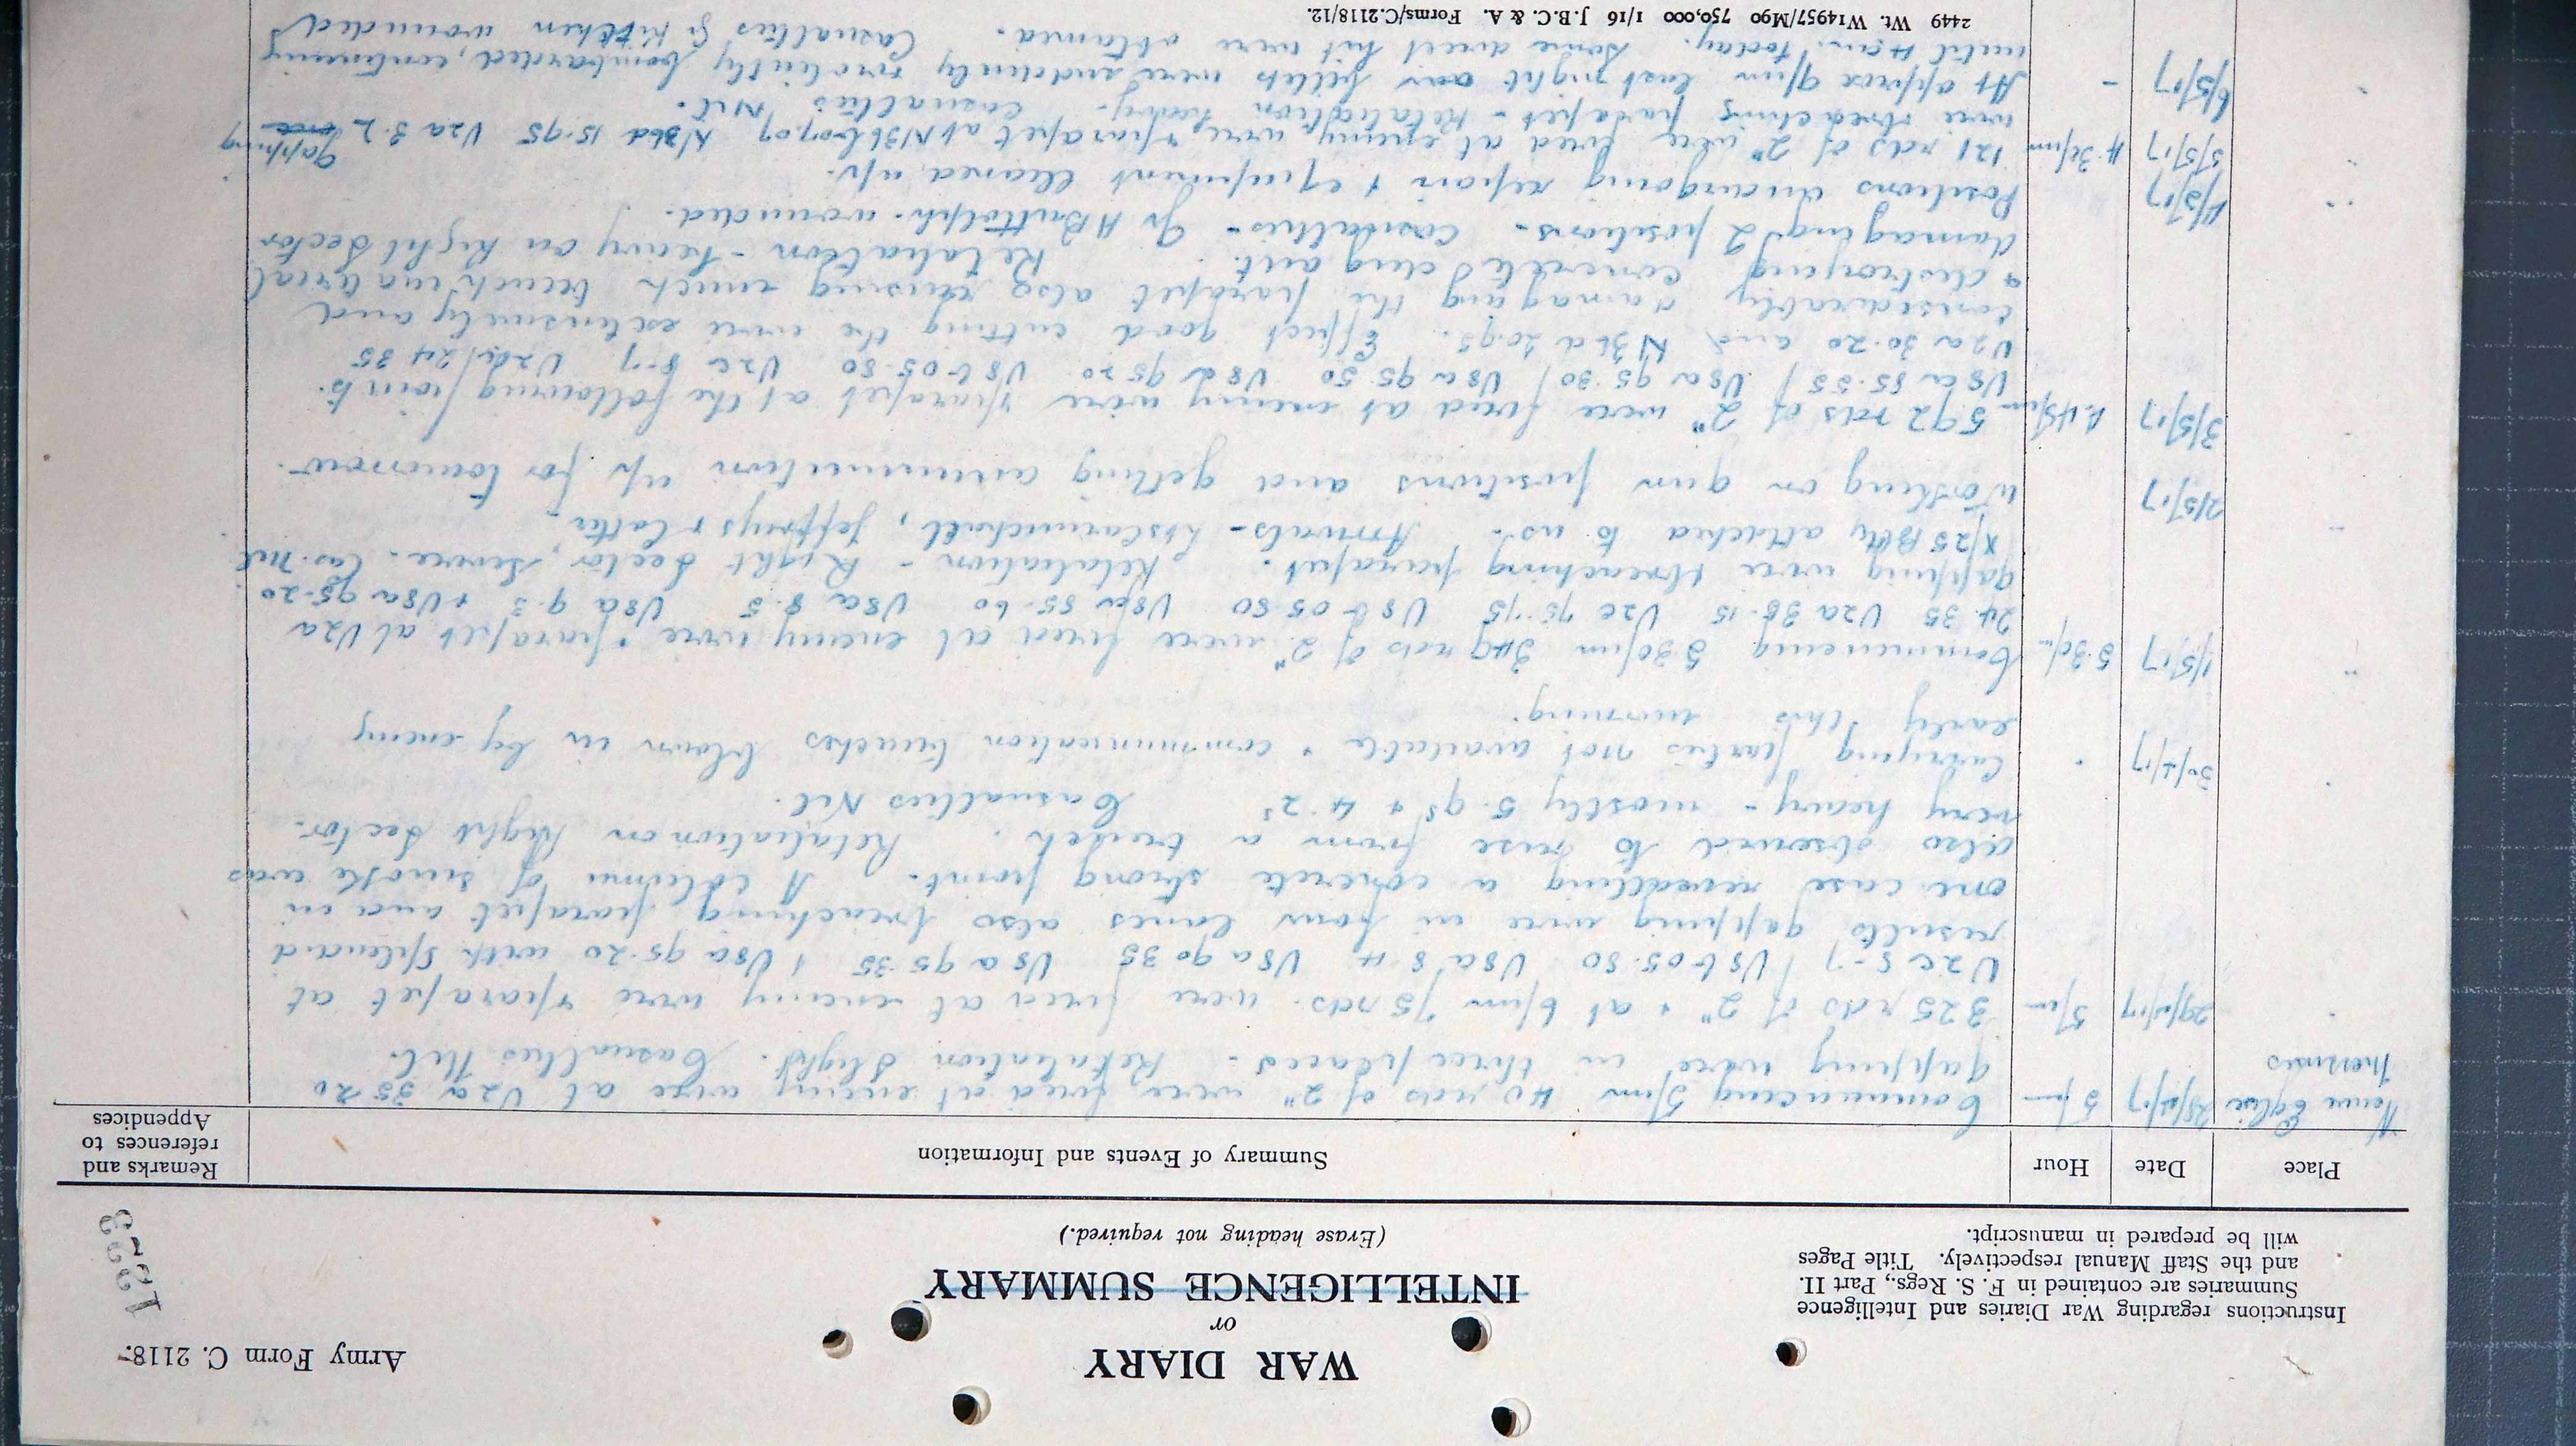 Army Form C. 2118.
WAR DIARY
or
INTELLIGENCE SUMMARY
(Erase heading not required.)
Instructions regarding War Diaries and Intelligence
Summaries are contained in F. S. Regs., Part II.
and the Staff Manual respectively. Title Pages
will be prepared in manuscript.
Place Date Hour Summary of Events and Information Remarks and references to Appendices
Neuve Eglise 28/4/17 5pm Commencing 5pm 40 rds of 2" were fired at enemy wire at U2a 35.20
Messines gapping wire in three places - Retaliation Slight. Casualties Nil.
29/4/17 5pm 325 rds of 2" + at 6pm 75 rds. were fired at enemy wire + parapet at
U2c 8-7 / U8b 05.80 U8a 8.4 U8a 90 35 U8a 95.35 + U8a 95.20 with splendid
results gapping wire in four lanes also breaching parapet and in
one case revealing a concrete strong point. A column of smoke was
also observed to rise from a trench. Retaliation on Right Sector.
very heavy - mostly 5.9s + 4.2s Casualties Nil.
30/4/17 Carrying parties not available + communication trenches blown in by enemy
early this morning.
1/5/17 3.30pm Commencing 3.30pm 349 rds of 2" were fired at enemy wire + parapet at U2a
24.35 U2a 35.15 U2c 75.15 U8b 05.80 U8a 85.60 U8a 8.5 U8a 9.3 + U8a 95.20
gapping wire + breaching parapet. Retaliation - Right Sector, Severe. Cas. Nil
X/25 Bty attached to us. Arrivals - Jeffreys + Latter.
2/5/17 Working on gun positions and getting ammunition up for tomorrow.
3/5/17 592 rds of 2" were fired at enemy wire + parapet at the following points.
U8a 85.55 / U8a 95.30 / U8a 95.50 U8a 95.20 U8b 05.80 U2c 8-7 U2a 24 35
U2a 30.20 and N36d 20.95. Effect good cutting the wire extensively and
considerably damaging the parapet also raising much trench material
+ destroying concrete dug out. Retaliation - heavy on Right Sector
damaging 2 positions - Casualties - Gr H Buttolph. wounded.
4/5/17 Positions undergoing repair + equipment cleaned up.
5/5/17 4.30pm 121 rds of 2" were fired at enemy wire + parapet at N36b 07.07 N36d 15.95 U2a 3.2 gapping
wire + breaching parapet - Retaliation heavy. Casualties Nil.
6/5/17 - At approx 9pm last night our billets were suddenly violently bombarded, continuing
until 4am. today. Some direct hits were obtained. Casualties Gr Kitchen wounded
2449 Wt. W14957/M90 750,000 1/16 J.B.C. & A. Forms/C.2118/12.